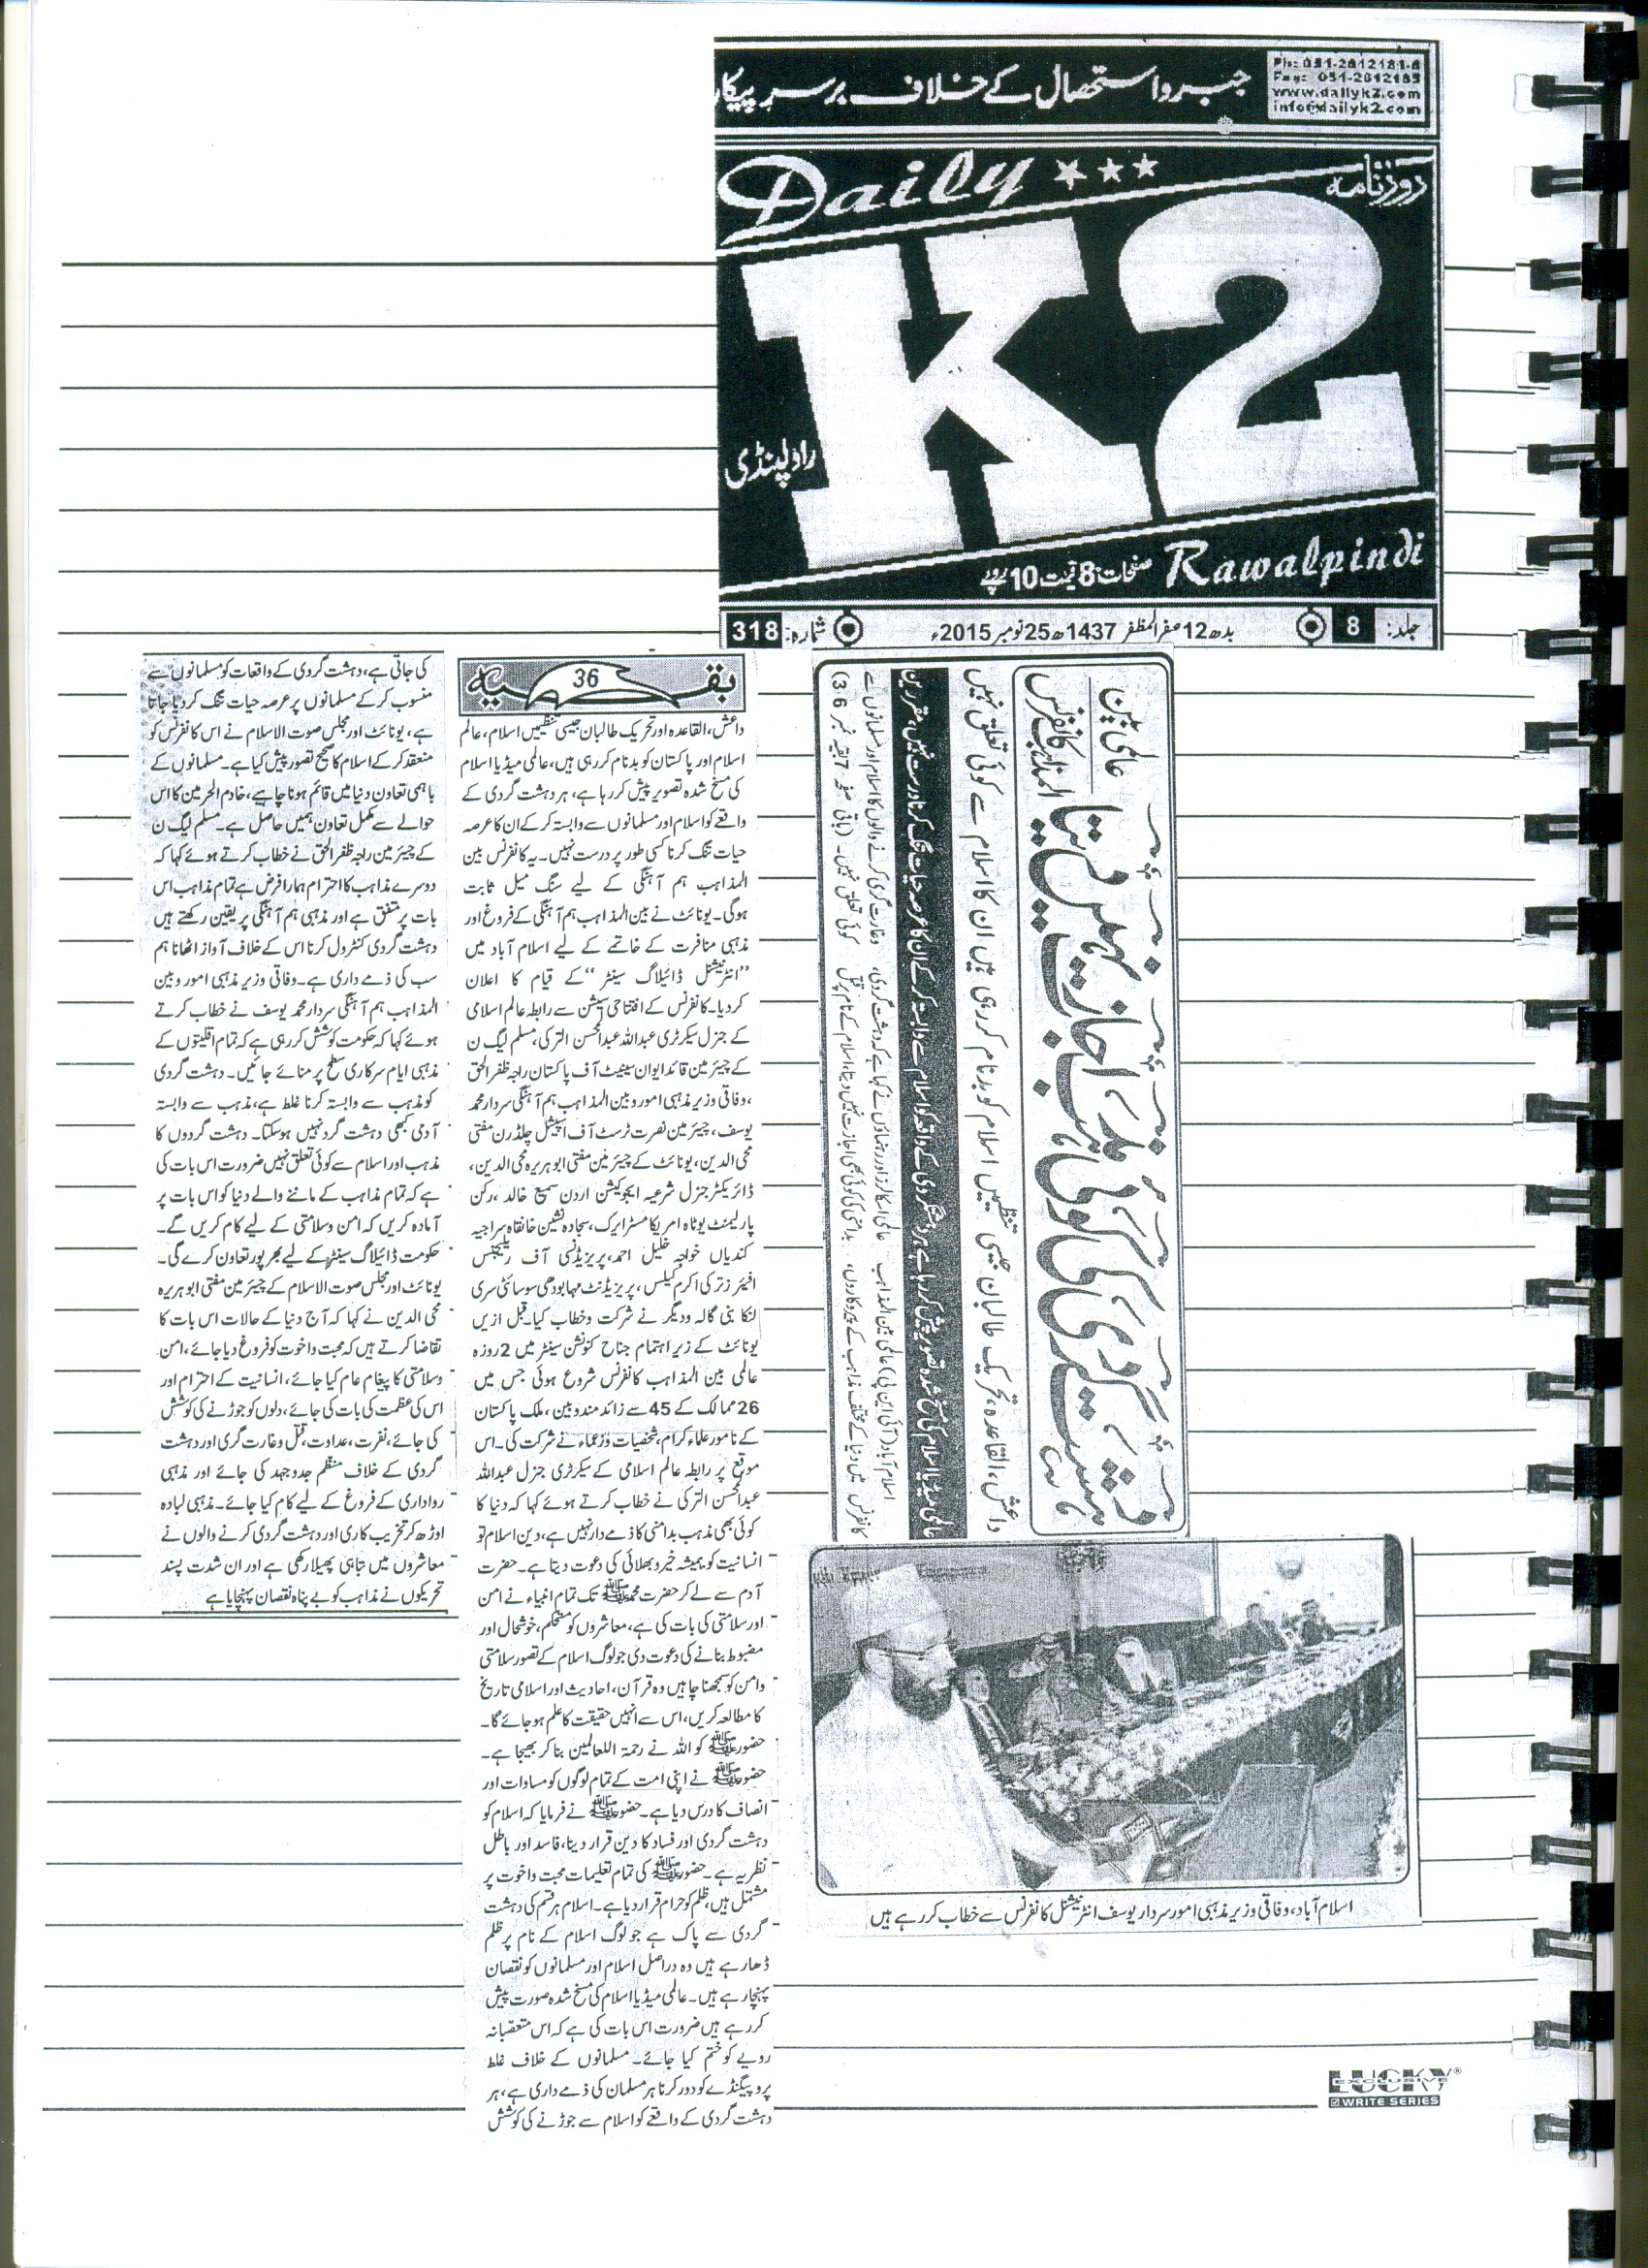 جبر و استحصال کے خلاف برسرِ پیکار
Ph: 051-2812181-6
Fax: 051-2812185
www.dailyk2.com
info@dailyk2.com
Daily
روزنامہ
K2
راولپنڈی
Rawalpindi
صفحات: 8 قیمت 10 روپے
جلد: 8
بدھ 12 صفر المظفر 1437ھ 25 نومبر 2015ء
شمارہ: 318
عالمی بین
المذاہب کانفرنس
داعش، القاعدہ، تحریک طالبان جیسی تنظیمیں اسلام کو بدنام کر رہی ہیں ان کا اسلام سے کوئی تعلق نہیں
بقیہ 36
داعش، القاعدہ اور تحریک طالبان جیسی تنظیمیں اسلام، عالم
اسلام اور پاکستان کو بدنام کر رہی ہیں، عالمی میڈیا اسلام
کی مسخ شدہ تصویر پیش کر رہا ہے، ہر دہشت گردی کے
واقعے کو اسلام اور مسلمانوں سے وابستہ کر کے ان کا عرصہ
حیات تنگ کرنا کسی طور پر درست نہیں۔ یہ کانفرنس بین
المذاہب ہم آہنگی کے لیے سنگ میل ثابت
ہوگی۔ یونائٹ نے بین المذاہب ہم آہنگی کے فروغ اور
مذہبی منافرت کے خاتمے کے لیے اسلام آباد میں
”انٹرنیشنل ڈائیلاگ سینٹر“ کے قیام کا اعلان
کردیا۔ کانفرنس کے افتتاحی سیشن سے رابطہ عالم اسلامی
کے جنرل سیکرٹری عبداللہ عبدالمحسن الترکی، مسلم لیگ ن
کے چیئرمین قائد ایوان سینیٹ آف پاکستان راجہ ظفر الحق
، وفاقی وزیر مذہبی امور و بین المذاہب ہم آہنگی سردار محمد
یوسف، چیئرمین نصرت ٹرسٹ آف اسپیشل چلڈرن مفتی
محی الدین، یونائٹ کے چیئرمین مفتی ابوہریرہ محی الدین،
ڈائریکٹر جنرل شرعیہ ایجوکیشن اردن سمیع خالد، رکن
پارلیمنٹ یوٹاہ امریکا مسٹر ایرک، سجادہ نشین خانقاہ سراجیہ
کندیاں خواجہ خلیل احمد، پریزیڈنسی آف ریلیجنس
افیئرز ترکی اکرم کیلس، پریزیڈنٹ مہابودھی سوسائٹی سری
لنکا بنی گالہ ودیگر نے شرکت وخطاب کیا۔ قبل ازیں
یونائٹ کے زیر اہتمام جناح کنونشن سینٹر میں 2 روزہ
عالمی بین المذاہب کانفرنس شروع ہوئی جس میں
26 ممالک کے 45 سے زائد مندوبین، ملک پاکستان
کے نامور علماء کرام، شخصیات وزعماء نے شرکت کی۔ اس
موقع پر رابطہ عالم اسلامی کے سیکرٹری جنرل عبداللہ
عبدالمحسن الترکی نے خطاب کرتے ہوئے کہا کہ دنیا کا
کوئی بھی مذہب بدامنی کا ذمے دار نہیں ہے، دین اسلام تو
انسانیت کو ہمیشہ خیر و بھلائی کی دعوت دیتا ہے۔ حضرت
آدم سے لے کر حضرت محمد ﷺ تک تمام انبیاء نے امن
اور سلامتی کی بات کی ہے، معاشروں کو مستحکم، خوشحال اور
مضبوط بنانے کی دعوت دی جو لوگ اسلام کے تصور سلامتی
وامن کو سمجھنا چاہیں وہ قرآن، احادیث اور اسلامی تاریخ
کا مطالعہ کریں، اس سے انہیں حقیقت کا علم ہو جائے گا۔
حضور ﷺ کو اللہ نے رحمۃ اللعالمین بنا کر بھیجا ہے۔
حضور ﷺ نے اپنی امت کے تمام لوگوں کو مساوات اور
انصاف کا درس دیا ہے۔ حضور ﷺ نے فرمایا کہ اسلام کو
دہشت گردی اور فساد کا دین قرار دینا، فاسد اور باطل
نظریہ ہے۔ حضور ﷺ کی تمام تعلیمات محبت و اخوت پر
مشتمل ہیں، ظلم کو حرام قرار دیا ہے۔ اسلام ہر قسم کی دہشت
گردی سے پاک ہے جو لوگ اسلام کے نام پر ظلم
ڈھا رہے ہیں وہ دراصل اسلام اور مسلمانوں کو نقصان
پہنچا رہے ہیں۔ عالمی میڈیا اسلام کی مسخ شدہ صورت پیش
کر رہے ہیں ضرورت اس بات کی ہے کہ اس متعصبانہ
رویے کو ختم کیا جائے۔ مسلمانوں کے خلاف غلط
پروپیگنڈے کو دور کرنا ہر مسلمان کی ذمے داری ہے، ہر
دہشت گردی کے واقعے کو اسلام سے جوڑنے کی کوشش
کی جاتی ہے، دہشت گردی کے واقعات کو مسلمانوں سے
منسوب کر کے مسلمانوں پر عرصہ حیات تنگ کر دیا جاتا
ہے، یونائٹ اور مجلس صوت الاسلام نے اس کانفرنس کو
منعقد کر کے اسلام کا صحیح تصور پیش کیا ہے۔ مسلمانوں کے
باہمی تعاون دنیا میں قائم ہونا چاہیے، خادم الحرمین کا اس
حوالے سے مکمل تعاون ہمیں حاصل ہے۔ مسلم لیگ ن
کے چیئرمین راجہ ظفر الحق نے خطاب کرتے ہوئے کہا کہ
دوسرے مذاہب کا احترام ہمارا فرض ہے تمام مذاہب اس
بات پر متفق ہے اور مذہبی ہم آہنگی پر یقین رکھتے ہیں
دہشت گردی کنٹرول کرنا اس کے خلاف آواز اٹھانا ہم
سب کی ذمے داری ہے۔ وفاقی وزیر مذہبی امور و بین
المذاہب ہم آہنگی سردار محمد یوسف نے خطاب کرتے
ہوئے کہا کہ حکومت کوشش کر رہی ہے کہ تمام اقلیتوں کے
مذہبی ایام سرکاری سطح پر منائے جائیں۔ دہشت گردی
کو مذہب سے وابستہ کرنا غلط ہے، مذہب سے وابستہ
آدمی کبھی دہشت گرد نہیں ہوسکتا۔ دہشت گردوں کا
مذہب اور اسلام سے کوئی تعلق نہیں ضرورت اس بات کی
ہے کہ تمام مذاہب کے ماننے والے دنیا کو اس بات پر
آمادہ کریں کہ امن وسلامتی کے لیے کام کریں گے۔
حکومت ڈائیلاگ سینٹر کے لیے بھرپور تعاون کرے گی۔
یونائٹ اور مجلس صوت الاسلام کے چیئرمین مفتی ابوہریرہ
محی الدین نے کہا کہ آج دنیا کے حالات اس بات کا
تقاضا کرتے ہیں کہ محبت واخوت کو فروغ دیا جائے، امن
وسلامتی کا پیغام عام کیا جائے، انسانیت کے احترام اور
اس کی عظمت کی بات کی جائے، دلوں کو جوڑنے کی کوشش
کی جائے، نفرت، عداوت، قتل وغارت گری اور دہشت
گردی کے خلاف منظم جدوجہد کی جائے اور مذہبی
رواداری کے فروغ کے لیے کام کیا جائے۔ مذہبی لبادہ
اوڑھ کر تخریب کاری اور دہشت گردی کرنے والوں نے
معاشروں میں تباہی پھیلا رکھی ہے اور ان شدت پسند
تحریکوں نے مذاہب کو بے پناہ نقصان پہنچایا ہے
اسلام آباد، وفاقی وزیر مذہبی امور سردار یوسف انٹرنیشنل کانفرنس سے خطاب کر رہے ہیں
LUCKY
EXCLUSIVE
WRITE SERIES